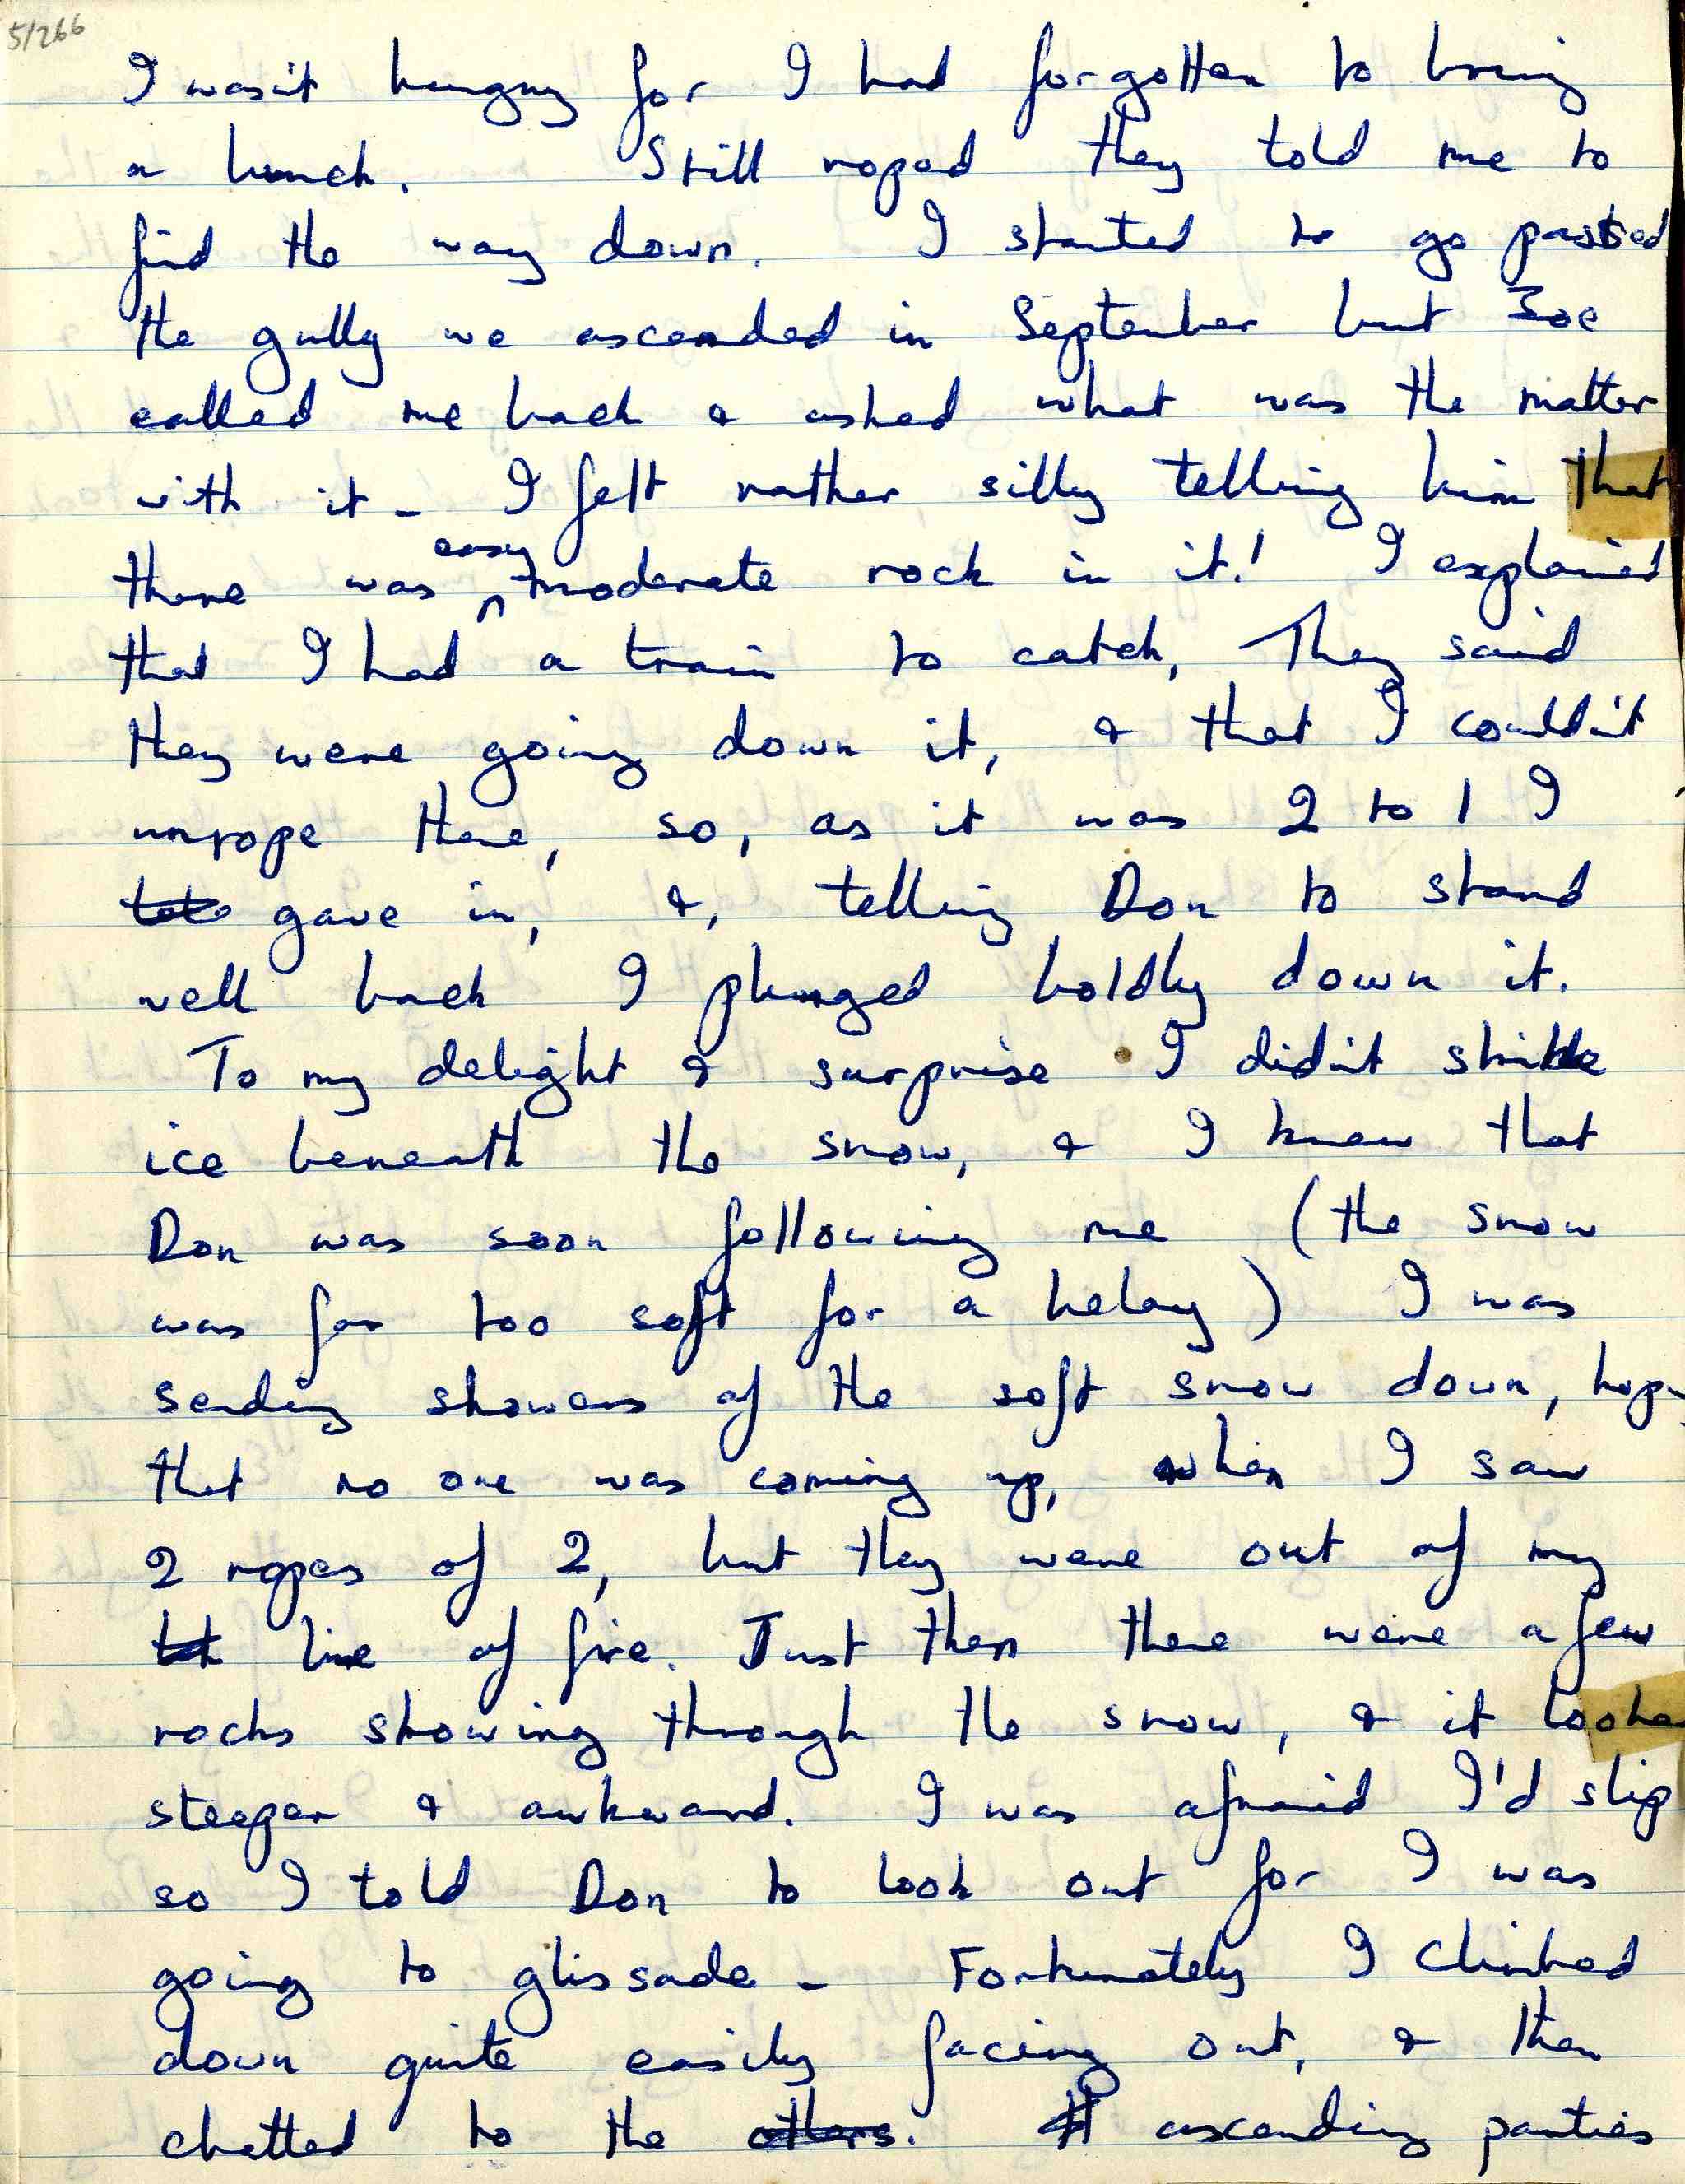 5/266
I wasn't hungry for I had forgotten to bring
a lunch. Still roped they told me to
find the way down. I started to go passed
the gully we ascended in September but Joe
called me back & asked what was the matter
with it - I felt rather silly telling him that
easy
there was moderate rock in it! I explained
that I had a train to catch, They said
they were going down it, & that I couldn't
unrope there, so, as it was 2 to 1 I
gave in, &, telling Don to stand
well back I plunged boldly down it.
To my delight & surprise I didn't strike
ice beneath the snow, & I knew that
Don was soon following me (the snow
was far too soft for a belay) I was
sending showers of the soft snow down,
that no one was coming up, when I saw
2 ropes of 2, but they were out of my
line of fire. Just then there were a few
rocks showing through the snow, & it looke
steeper & awkward. I was afraid I'd slip
so I told Don to look out for I was
going to glissade - Fortunately I climbed
down quite easily facing out, & then
chatted to the others. ascending parties